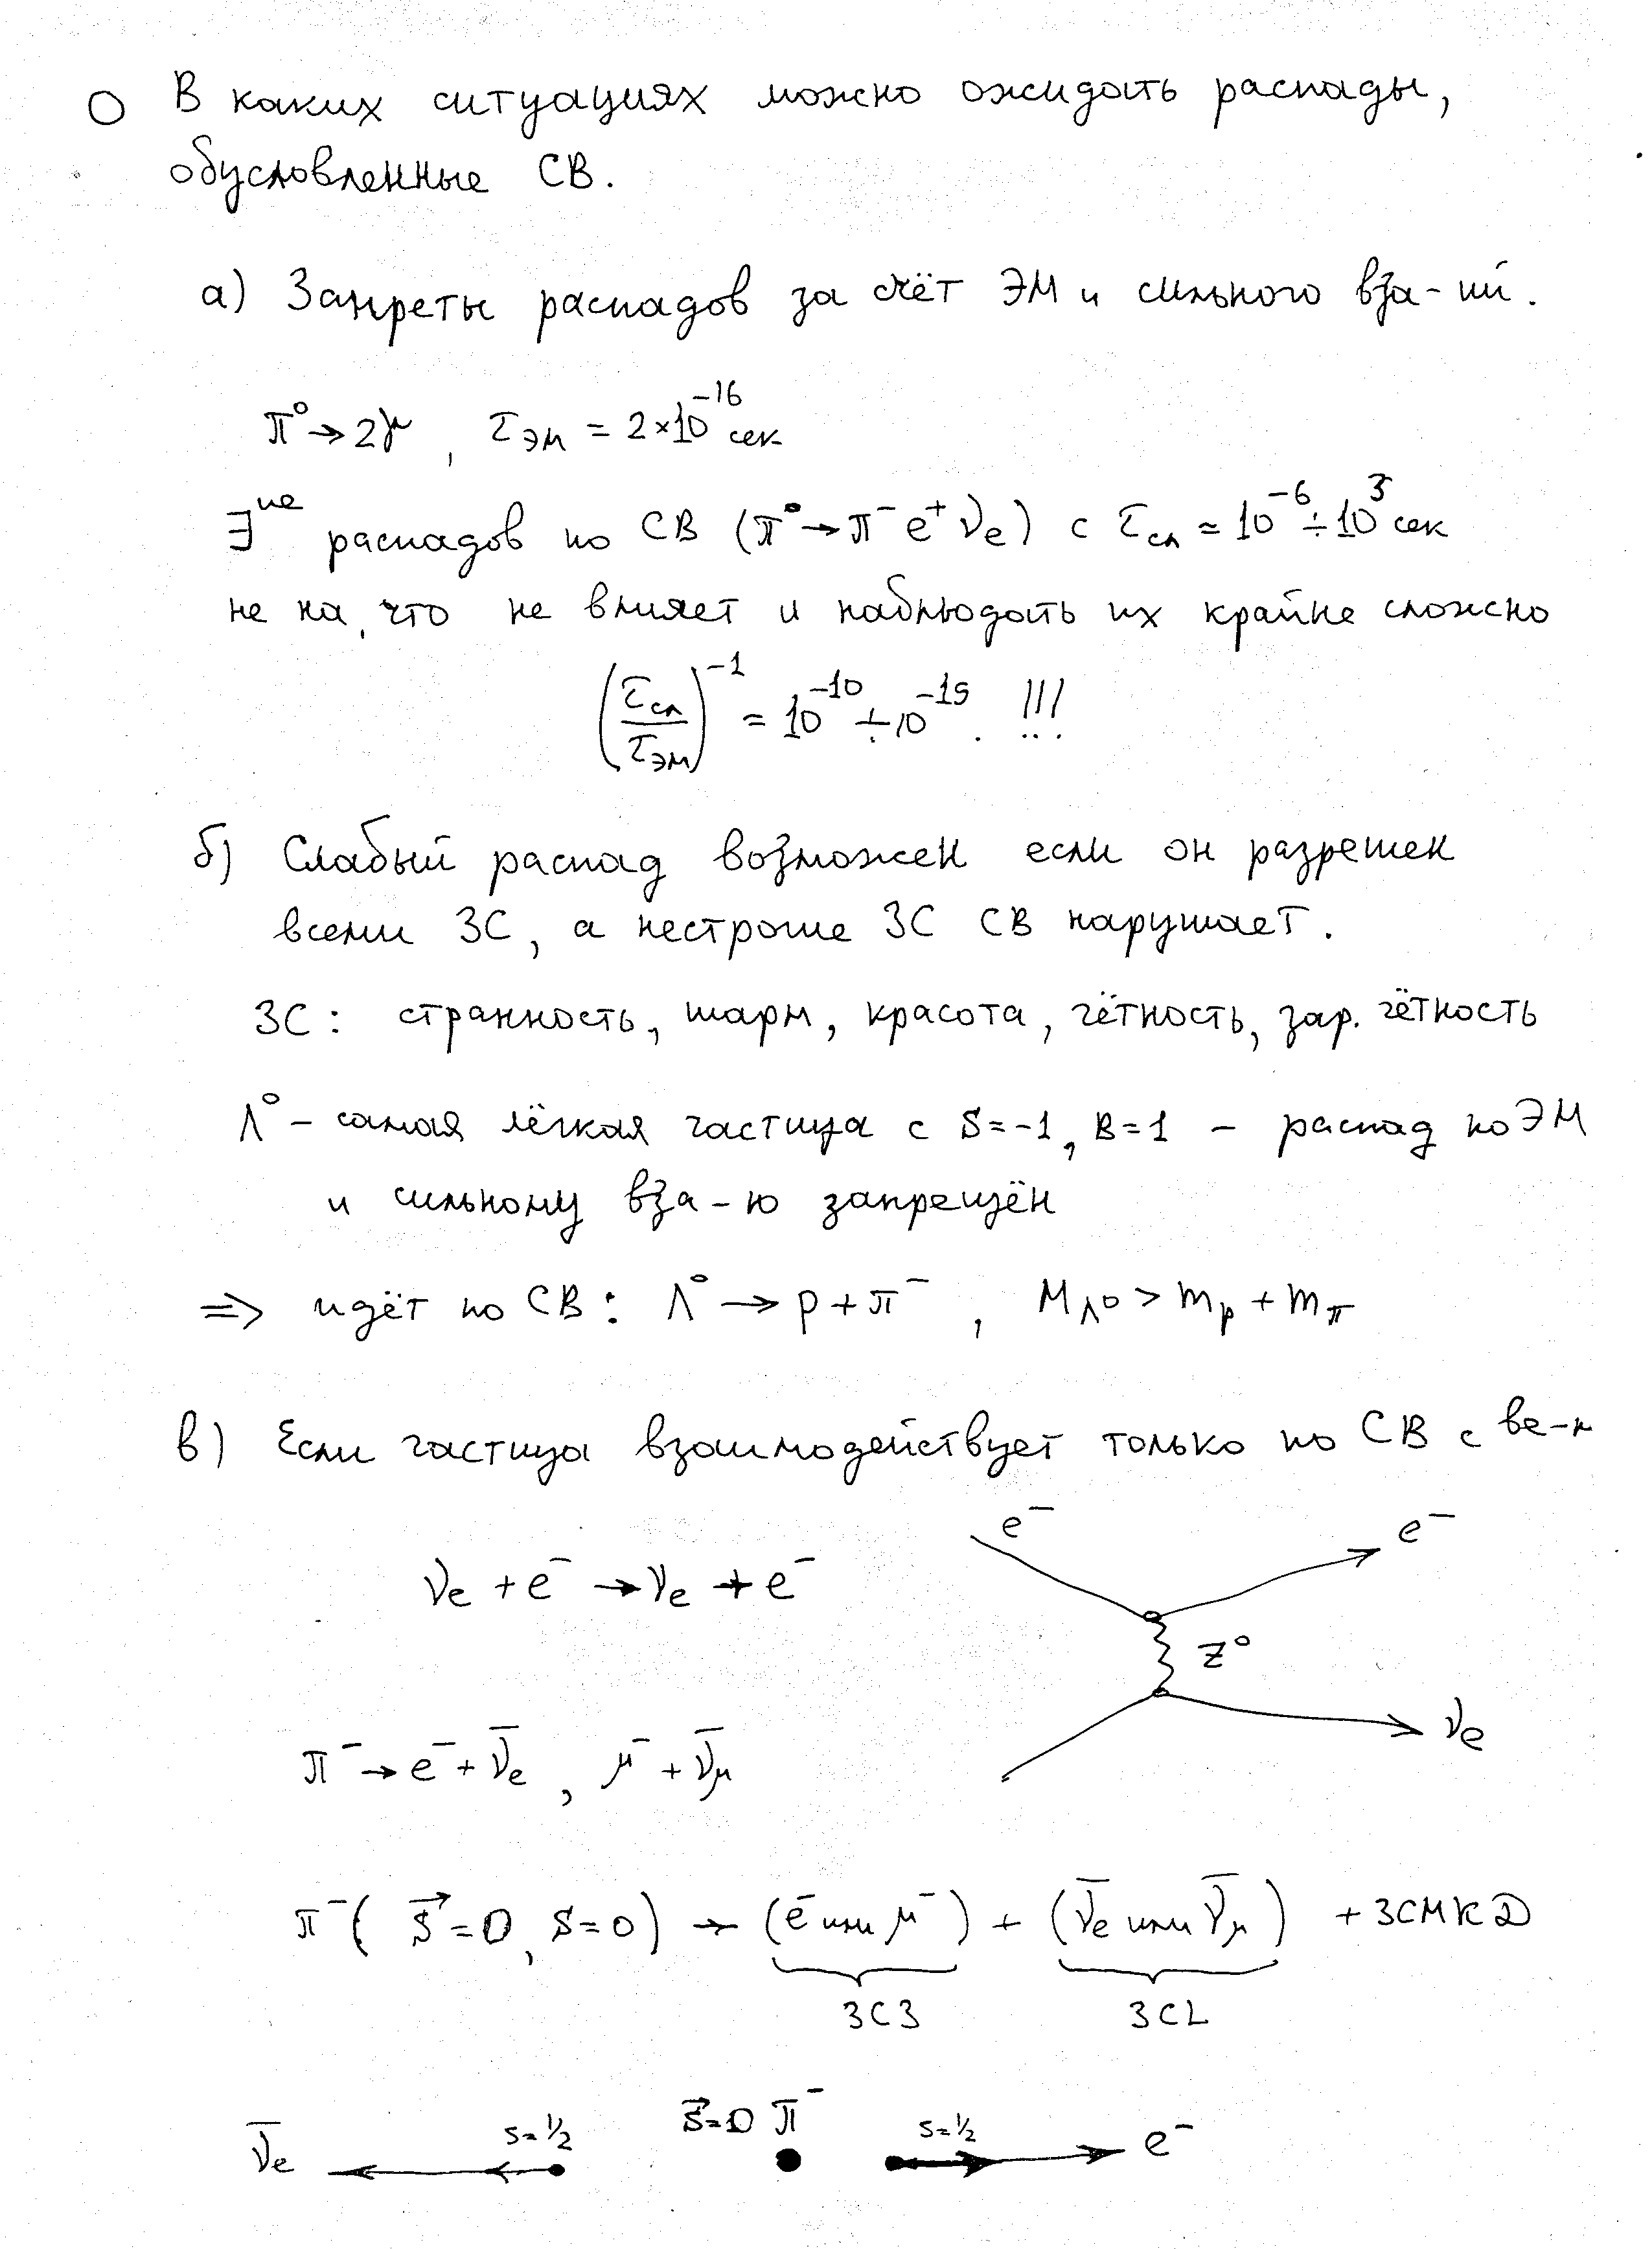 О В каких ситуациях можно ожидать распады,
обусловленные СВ.
а) Запреты распадов за счёт ЭМ и сильного вза-ий.
π⁰ → 2γ, τ_эм = 2×10⁻¹⁶ сек
∃ᵘᵉ распадов по СВ (π⁰ → π⁻ e⁺ ν_e) с τ_сл ≃ 10⁻⁶ ÷ 10³ сек
не на что не влияет и наблюдать их крайне сложно
(τ_сл/τ_эм)⁻¹ = 10⁻¹⁰ ÷ 10⁻¹⁹. !!!
б) Слабый распад возможен если он разрешен
всеми ЗС, а нестрогие ЗС СВ нарушает.
ЗС: странность, шарм, красота, чётность, зар. чётность
Λ⁰ – самая лёгкая частица с S=-1, B=1 – распад по ЭМ
и сильному вза-ю запрещён
=> идёт по СВ: Λ⁰ → p + π⁻, M_Λ⁰ > m_p + m_π
в) Если частица взаимодействует только по СВ с ве-м
e⁻ e⁻
ν_e + e⁻ → ν_e + e⁻
Z⁰
ν_e
π⁻ → e⁻ + ν̅_e, μ⁻ + ν̅_μ
π⁻( S⃗=0, S=0) → (e⁻ или μ⁻) + (ν̅_e или ν̅_μ) + ЗСМКД
ЗСЗ ЗСL
ν̅_e s=1/2 S⃗=0 π⁻ s=1/2 e⁻